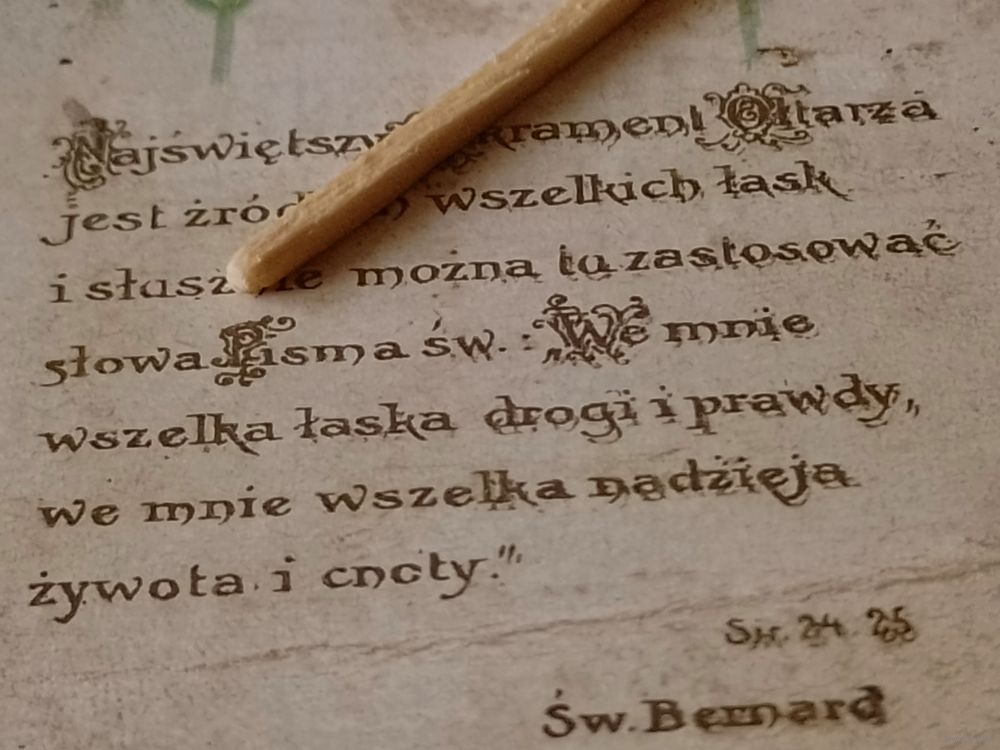 Najświętszy Ołtarza
jest wszelkich łask
i można tu zastosować
słowa Pisma św.: We mnie
wszelka łaska drogi i prawdy,
we mnie wszelka nadzieja
żywota i cnoty."
Syr. 24. 25
Św. Bernard